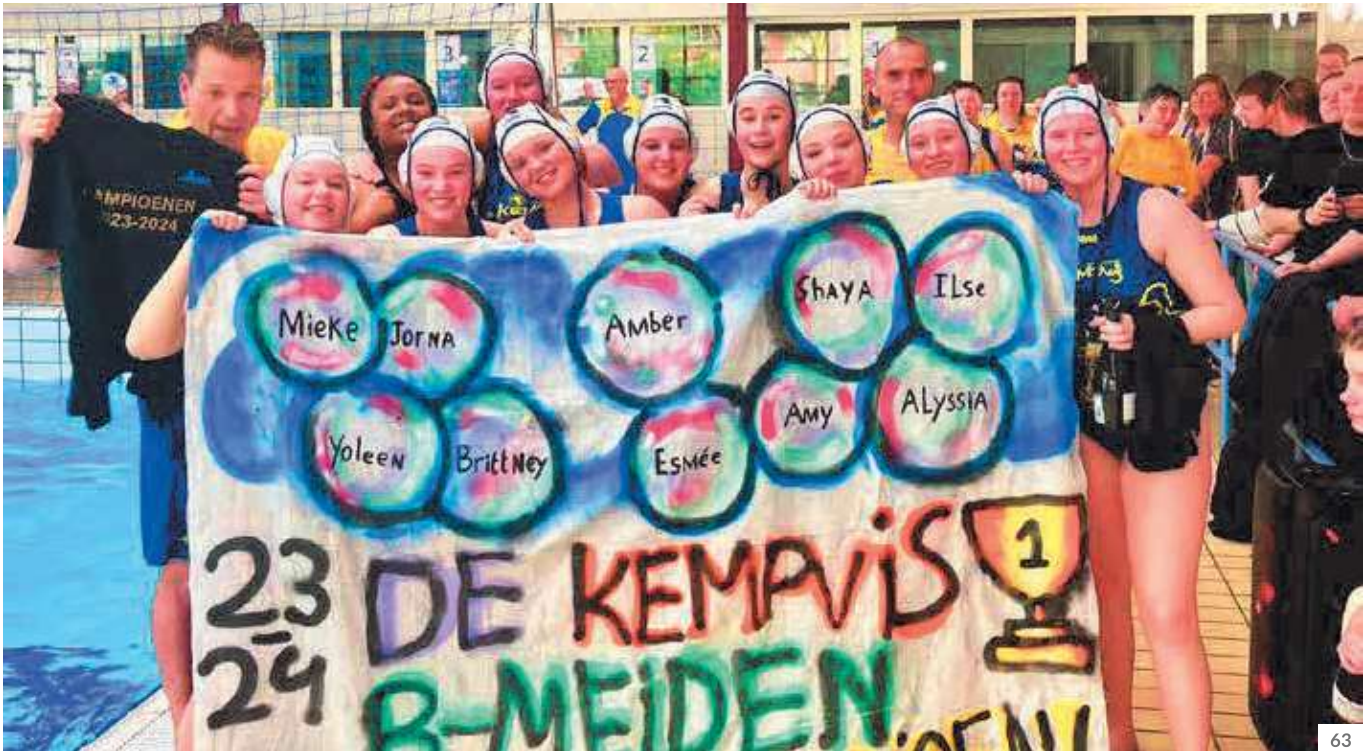 3
2
1
AMPIOENEN
23-2024
Mieke
Jorna
Amber
ShAYA
ILse
Yoleen
BrittNey
ESMée
AMY
ALyssiA
1
23
-
24
DE KEMPViS
B-MEiDEN
63